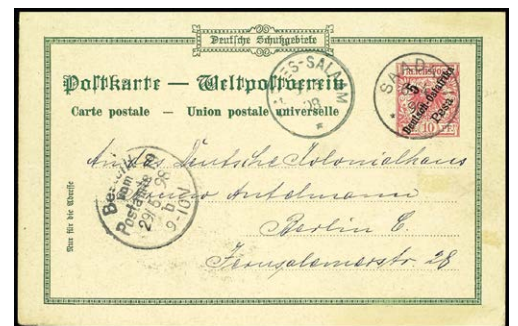 Deutsche Schutzgebiete
Postkarte — Weltpostverein
Carte postale — Union postale universelle
ES-SALAAM
98
SAAD
REICHSPOST
5
Deutsch-Ostafrika
Pesa
10 PF
An das Deutsche Kolonialhaus
Bruno Antelmann
Berlin C.
Jerusalemerstr 28
Bestellt
vom
Postamte
29/5 98
9-10V
Nur für die Adresse